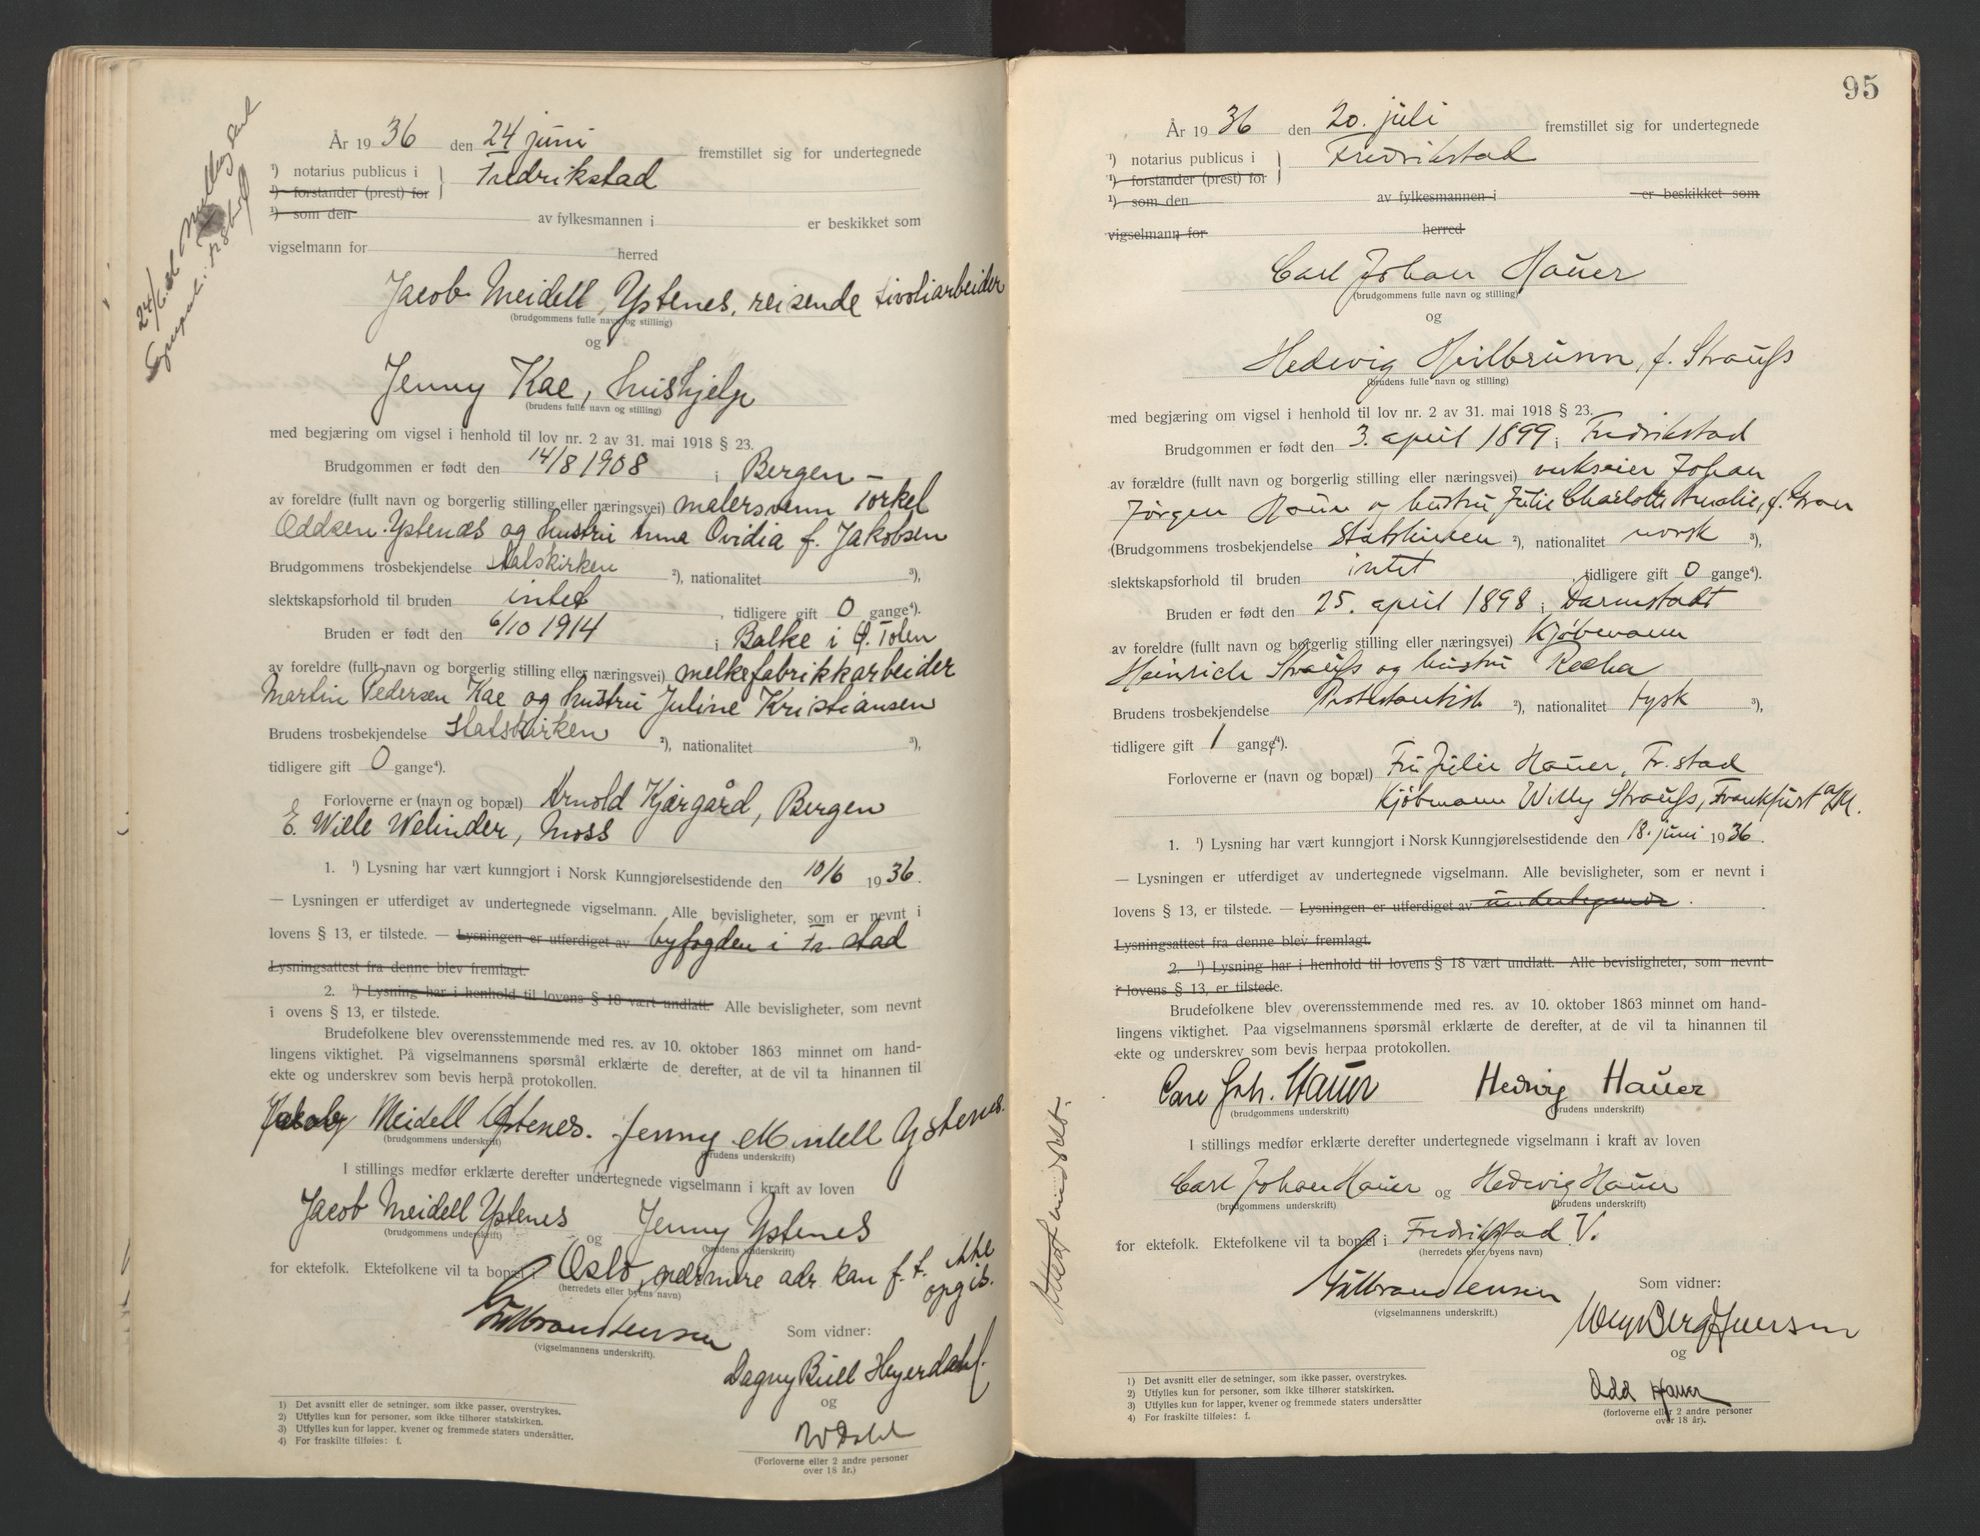 År 1936 den 24 juni fremstillet sig for undertegnede
¹) notarius publicus i
¹) forstander (prest) for } Fredrikstad
¹) som den av fylkesmannen i er beskikket som
vigselmann for herred
Jacob Meidell Ystenes, reisende tivoliarbeider
(brudgommens fulle navn og stilling)
og
Jenny Kae, hushjelp
(brudens fulle navn og stilling)
med begjæring om vigsel i henhold til lov nr. 2 av 31. mai 1918 § 23.
Brudgommen er født den 14/8 1908 i Bergen –
av foreldre (fullt navn og borgerlig stilling eller næringsvei) malersvenn Torkel
Oddsen Ystenæs og hustru Anna Ovidia f. Jakobsen
Brudgommens trosbekjendelse Statskirken ²), nationalitet ³),
slektskapsforhold til bruden intet, tidligere gift 0 gange⁴).
Bruden er født den 6/10 1914 i Balke i Ø. Toten
av foreldre (fullt navn og borgerlig stilling eller næringsvei) melkefabrikkarbeider
Martin Pedersen Kae og hustru Juline Kristiansen
Brudens trosbekjendelse Statskirken ²), nationalitet ³),
tidligere gift 0 gange⁴).
Forloverne er (navn og bopæl) Arnold Kjærgård, Bergen
E. Wille Welinder, Moss
1. ¹) Lysning har vært kunngjort i Norsk Kunngjørelsestidende den 10/6 1936.
— Lysningen er utferdiget av undertegnede vigselmann. Alle bevisligheter, som er nevnt i
lovens § 13, er tilstede. — Lysningen er utferdiget av byfogden i Fr.stad
Lysningsattest fra denne blev fremlagt.
2. ¹) Lysning har i henhold til lovens § 18 vært undlatt. Alle bevisligheter, som nevnt
i ovens § 13, er tilstede.
Brudefolkene blev overensstemmende med res. av 10. oktober 1863 minnet om hand-
lingens viktighet. På vigselmannens spørsmål erklærte de derefter, at de vil ta hinannen til
ekte og underskrev som bevis herpå protokollen.
Jakob Meidell Ystenes. Jenny Meidell Ystenes.
(brudgommens underskrift) (brudens underskrift)
I stillings medfør erklærte derefter undertegnede vigselmann i kraft av loven
Jacob Meidell Ystenes og Jenny Ystenes
(brudgommens underskrift) (brudens underskrift)
for ektefolk. Ektefolkene vil ta bopæl i Oslo, nærmere adr. kan f.t. ikke opgis.
(herredets eller byens navn)
(vigselmannens underskrift).
Som vidner:
Dagny Bull Heyerdahl.
og
W Dahl
(Forloverne eller 2 andre personer
over 18 år.)
1) Det avsnitt eller de setninger, som ikke passer, overstrykes.
2) Utfylles kun for personer, som ikke tilhører statskirken.
3) Utfylles kun for lapper, kvener og fremmede staters undersåtter.
4) For fraskilte tilføies: f.
95
År 1936 den 20. juli fremstillet sig for undertegnede
¹) notarius publicus i
¹) forstander (prest) for } Fredrikstad
¹) som den av fylkesmannen i er beskikket som
vigselmann for herred
Carl Johan Hauer
(brudgommens fulle navn og stilling)
og
Hedwig Heilbrunn, f. Strauss
(brudens fulle navn og stilling)
med begjæring om vigsel i henhold til lov nr. 2 av 31. mai 1918 § 23.
Brudgommen er født den 3. april 1899 i Fredrikstad
av forældre (fullt navn og borgerlig stilling eller næringsvei) verkseier Johan
Jørgen Hauer og hustru Julie Charlotte Amalie, f. Gran
(Brudgommens trosbekjendelse Statskirken ²), nationalitet norsk ³),
slektskapsforhold til bruden intet tidligere gift 0 gange⁴).
Bruden er født den 25. april 1898 i Darmstadt
av foreldre (fullt navn og borgerlig stilling eller næringsvei) Kjøbmann
Heinrich Strauss og hustru Recha
Brudens trosbekjendelse Protestantisk ²), nationalitet tysk ³),
tidligere gift 1 gange⁴).
Forloverne er (navn og bopæl) Fru Julie Hauer, Fr.stad
Kjøbmann Willy Strauss, Frankfurt a/M.
1. ¹) Lysning har vært kunngjort i Norsk Kunngjørelsestidende den 18. juni 1936.
— Lysningen er utferdiget av undertegnede vigselmann. Alle bevisligheter, som er nevnt i
lovens § 13, er tilstede. — Lysningen er utferdiget av undertegnede.
Lysningsattest fra denne blev fremlagt.
2. ¹) Lysning har i henhold til lovens § 18 vært undlatt. Alle bevisligheter, som nevnt
i lovens § 13, er tilstede.
Brudefolkene blev overensstemmende med res. av 10. oktober 1863 minnet om hand-
lingens viktighet. Paa vigselmannens spørsmål erklærte de derefter, at de vil ta hinannen til
ekte og underskrev som bevis herpaa protokollen.
Carl Joh. Hauer Hedwig Hauer
(brudgommens underskrift) (brudens underskrift)
I stillings medfør erklærte derefter undertegnede vigselmann i kraft av loven
Carl Johan Hauer og Hedwig Hauer
(brudgommens underskrift) (brudens underskrift)
for ektefolk. Ektefolkene vil ta bopæl i Fredrikstad V.
(herredets eller byens navn)
(vigselmannens underskrift.)
Som vidner:
og
Odd Hauer
(forloverne eller 2 andre personer
over 18 år).
1) Det avsnitt eller de setninger, som ikke passer, overstrykes.
2) Utfylles kun for personer, som ikke tilhører statskirken.
3) Utfylles kun for lapper, kvener og fremmede staters undersåtter
4) For fraskilte tilføies: f.